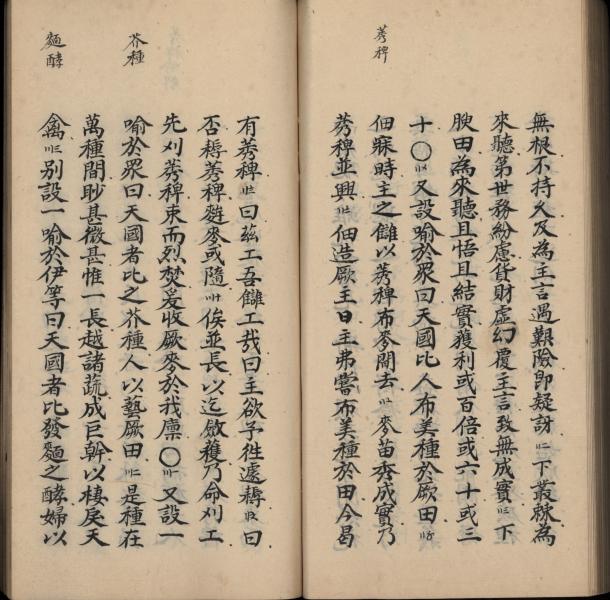 莠稗
無根不持久及為主言遇艱險即疑訝下叢棘為
來聽第世務紛慮貨財虛幻覆主言致無成實下
腴田為來聽且悟且結實獲利或百倍或六十或三
十〇又設喻於眾曰天國比人布美種於厥田
佃寐時主之讎以莠稗布麥間去麥苗秀成實乃
莠稗並興佃造厥主曰主弗嘗布美種於田今曷
芥種
麵酵
有莠稗曰茲工吾讎工哉曰主欲予徃遽耨曰
否耨莠稗麥或隨俟並長以迄斂穫乃命刈工
先刈莠稗束而烈焚爰收厥麥於我廩〇又設一
喻於眾曰天國者比之芥種人以藝厥田是種在
萬種間眇甚微甚惟一長越諸蔬成巨幹以棲戾天
禽別設一喻於伊等曰天國者比發麵之酵婦以